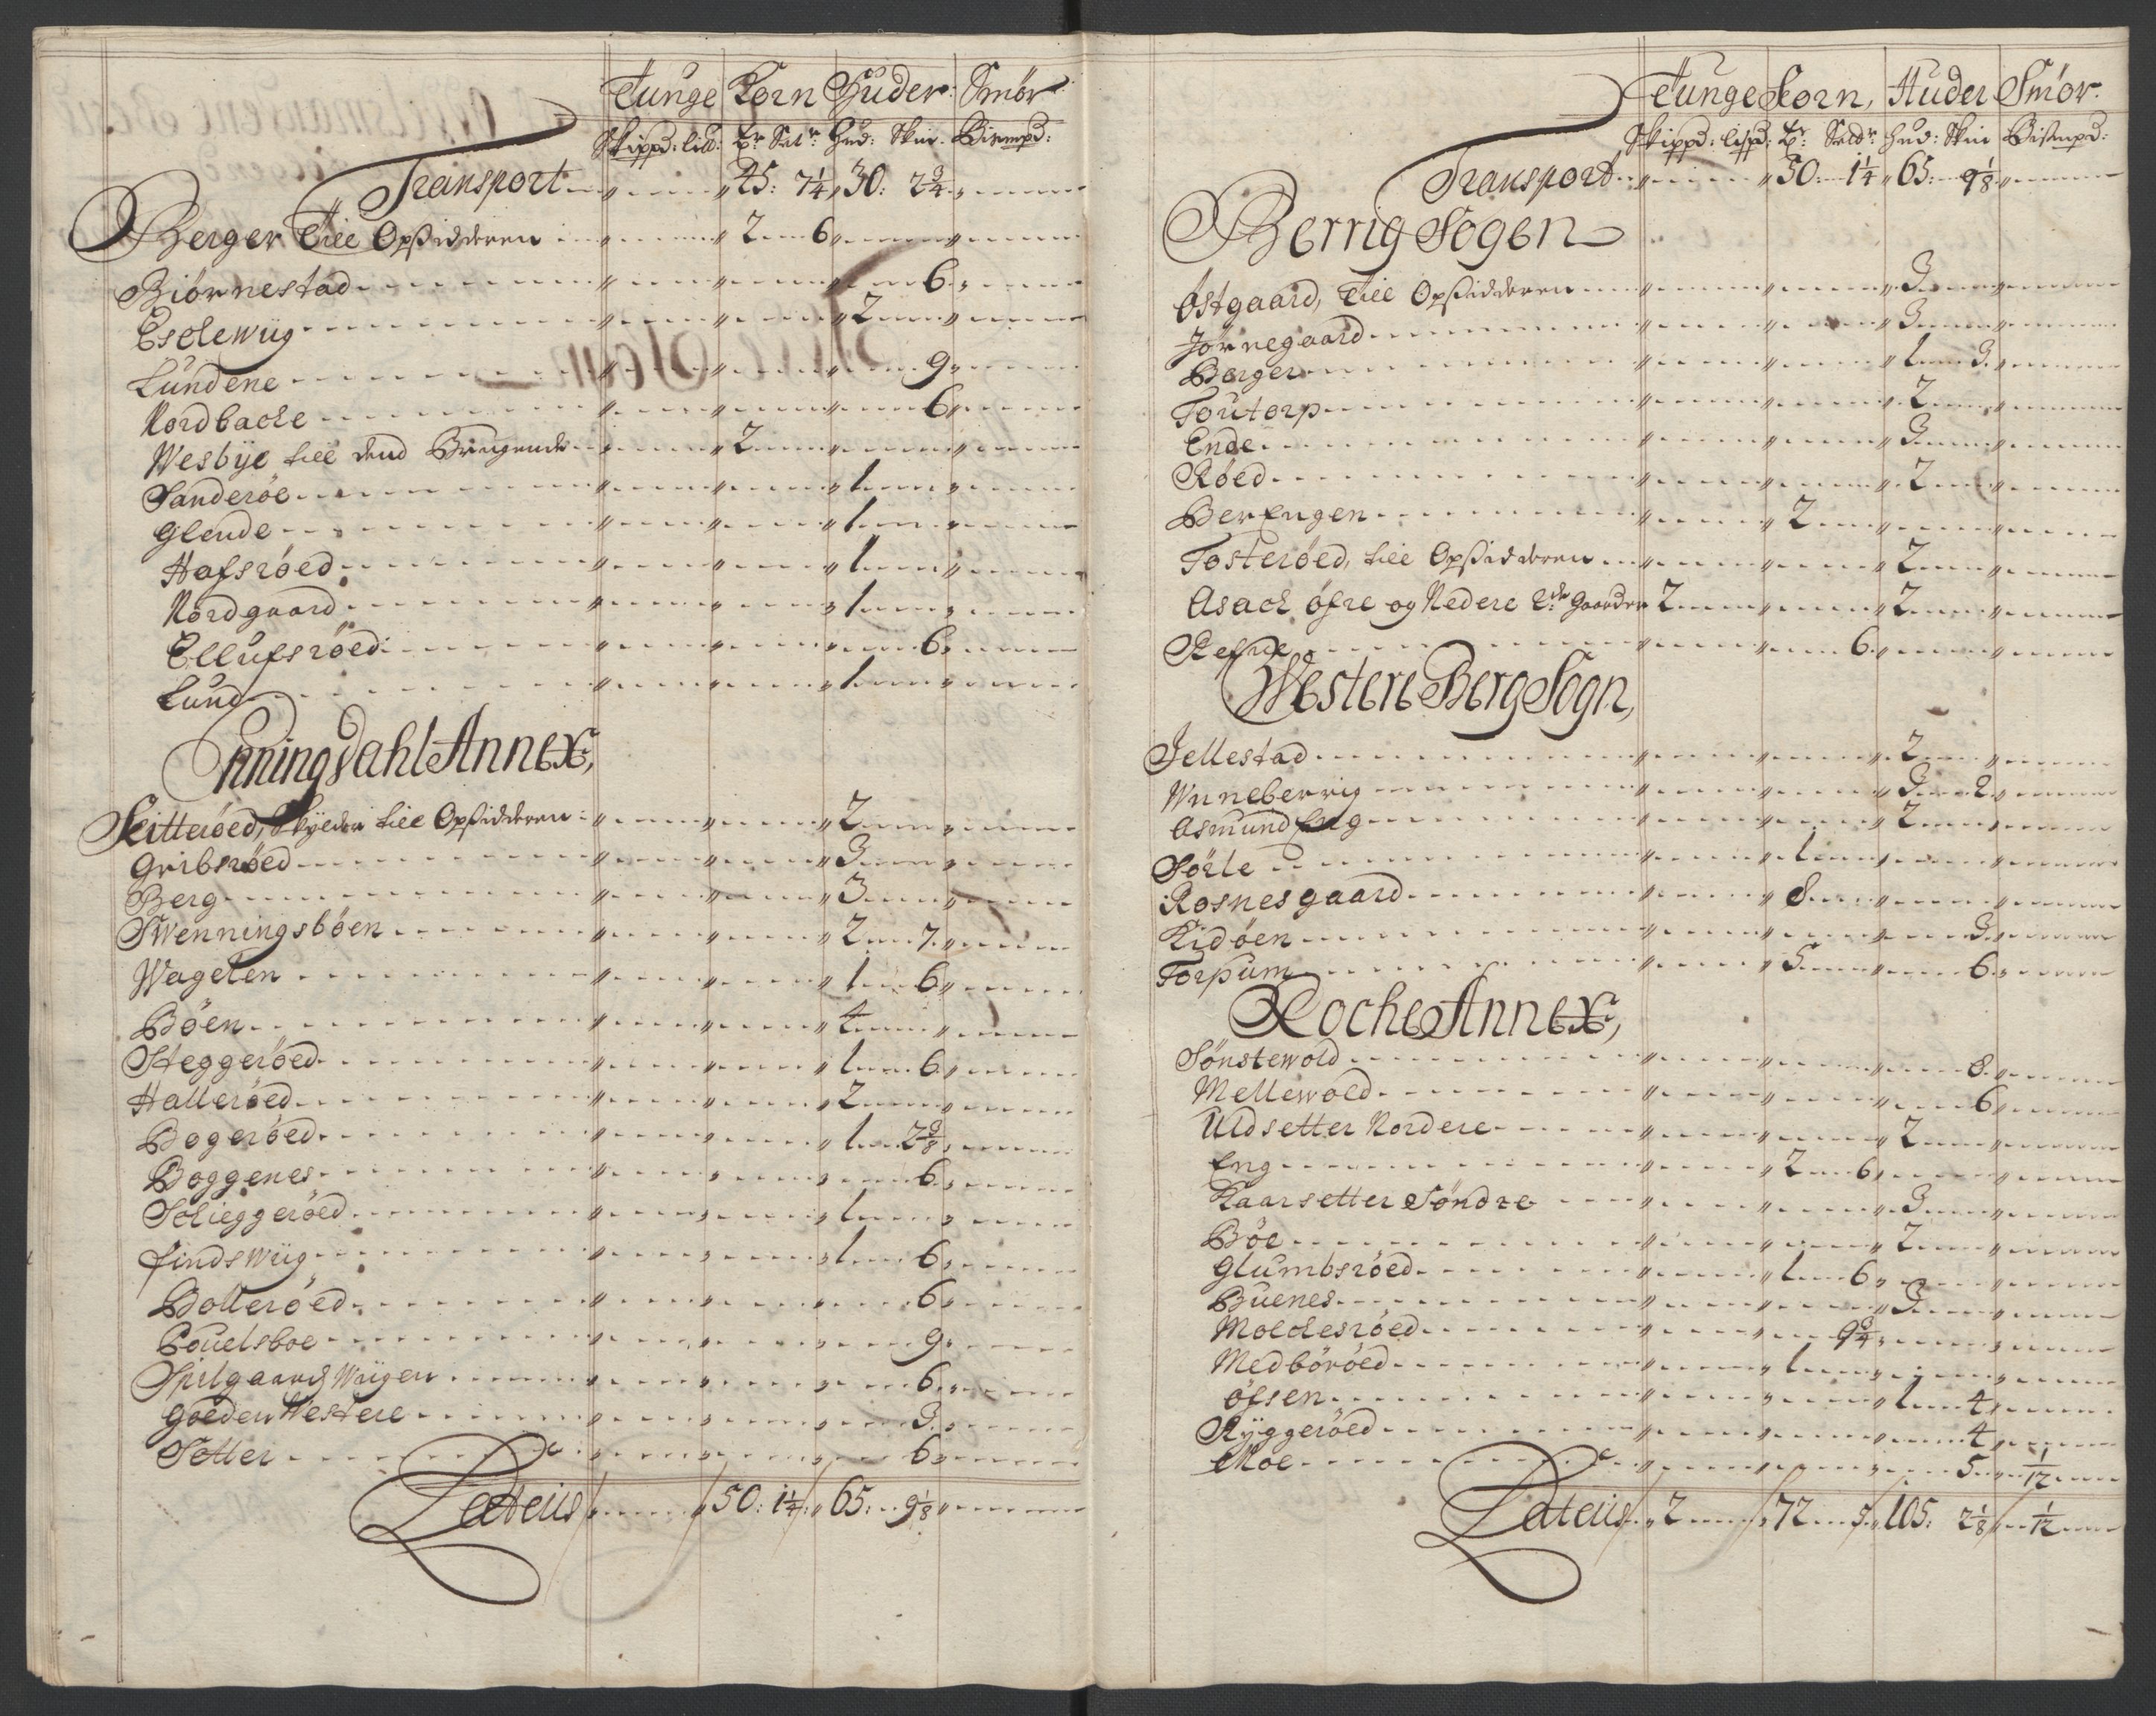 Tunge Korn Huder Smör
Skippd: lisd: Lr: Setr: Hud: Skin. Bismpd:
Transport 45: 7 1/4 30: 2 3/4
Berger Till Opsidderen 2 6
Biörnestad 6
Escklewiig 2
Lundene 9
Nordbacke 6
Wesbye till dend Brugende 2
Sanderöe 1
Glende 1
Hafsröed 1
Nordgaard 1
Ellufsröed 6
Lund 1
Enningdahl Annex,
Kitteröed, Skylder till Opsidderen 2
Gribsröed 3
Berg 3
Swenningsböen 2 7
Wagelen 1 6
Böen 4
Steggeröed 1 6
Halleröed 2
Bogeröed 1 2 3/8
Boggenes 6
Schieggeröed 1
Findswiig 1 6
Bolleröed 6
Pouelsboe 9
Spilgaard Wiigen 6
Goeden Westere 3
Setter 6
Lateris 50: 1 1/4 65: 9 1/8
Tunge Korn, Huder Smör.
Skippd: lispd: Lr: Setdr: Hud: Skin Bismpd:
Transport 50 1 1/4 65: 9 1/8
Berrig Sogen
Östgaard, Till Opsidderen 3
Jörnegaard 3
Berger 1 3
Toutorp 2
Ende 3
Röed 2
Ber Engen 2
Tosteröed, till Opsidderen 2
Asack öfre og Nedere 2de Gaarder 2 2
Refne 6
Westere Berg Sogn,
Jellestad 2
Wnneberrig 3 2
Asmund Eng 2
Sörle 1
Rosnesgaard 8
Kidöen 3
Torpum 5 6
Rocke Annex,
Sönstewold 8
Mellewold 6
Uldsetter Nordere 2
Eng 2 6
Kaarsetter Söndre 3
Böe 2
Glumbsröed 1 6
Buenes 3
Molckesröed 9 3/4
Medböröed 1
Öfsen 1 4
Ryggeröed 4
Moe 5 1/12
Lateris 2 72 5 105: 2 1/8 1/12